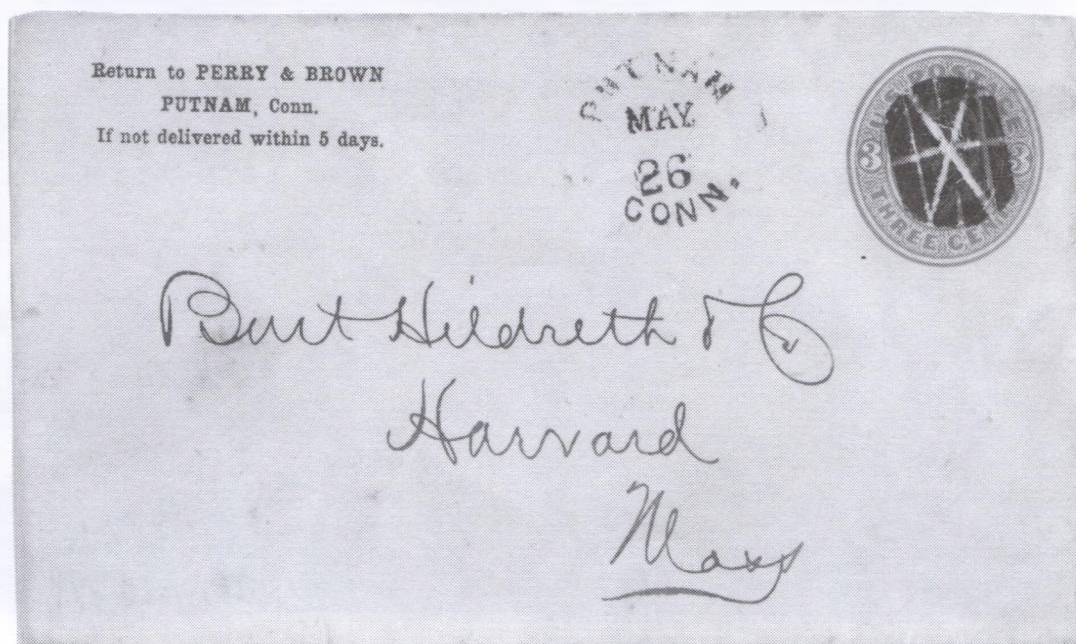 Return to PERRY & BROWN
PUTNAM, Conn.
If not delivered within 5 days.
PUTNAM
MAY
26
CONN.
U.S. POSTAGE
3 3
THREE CENTS
Burt Hildreth & Co
Harvard
Mass